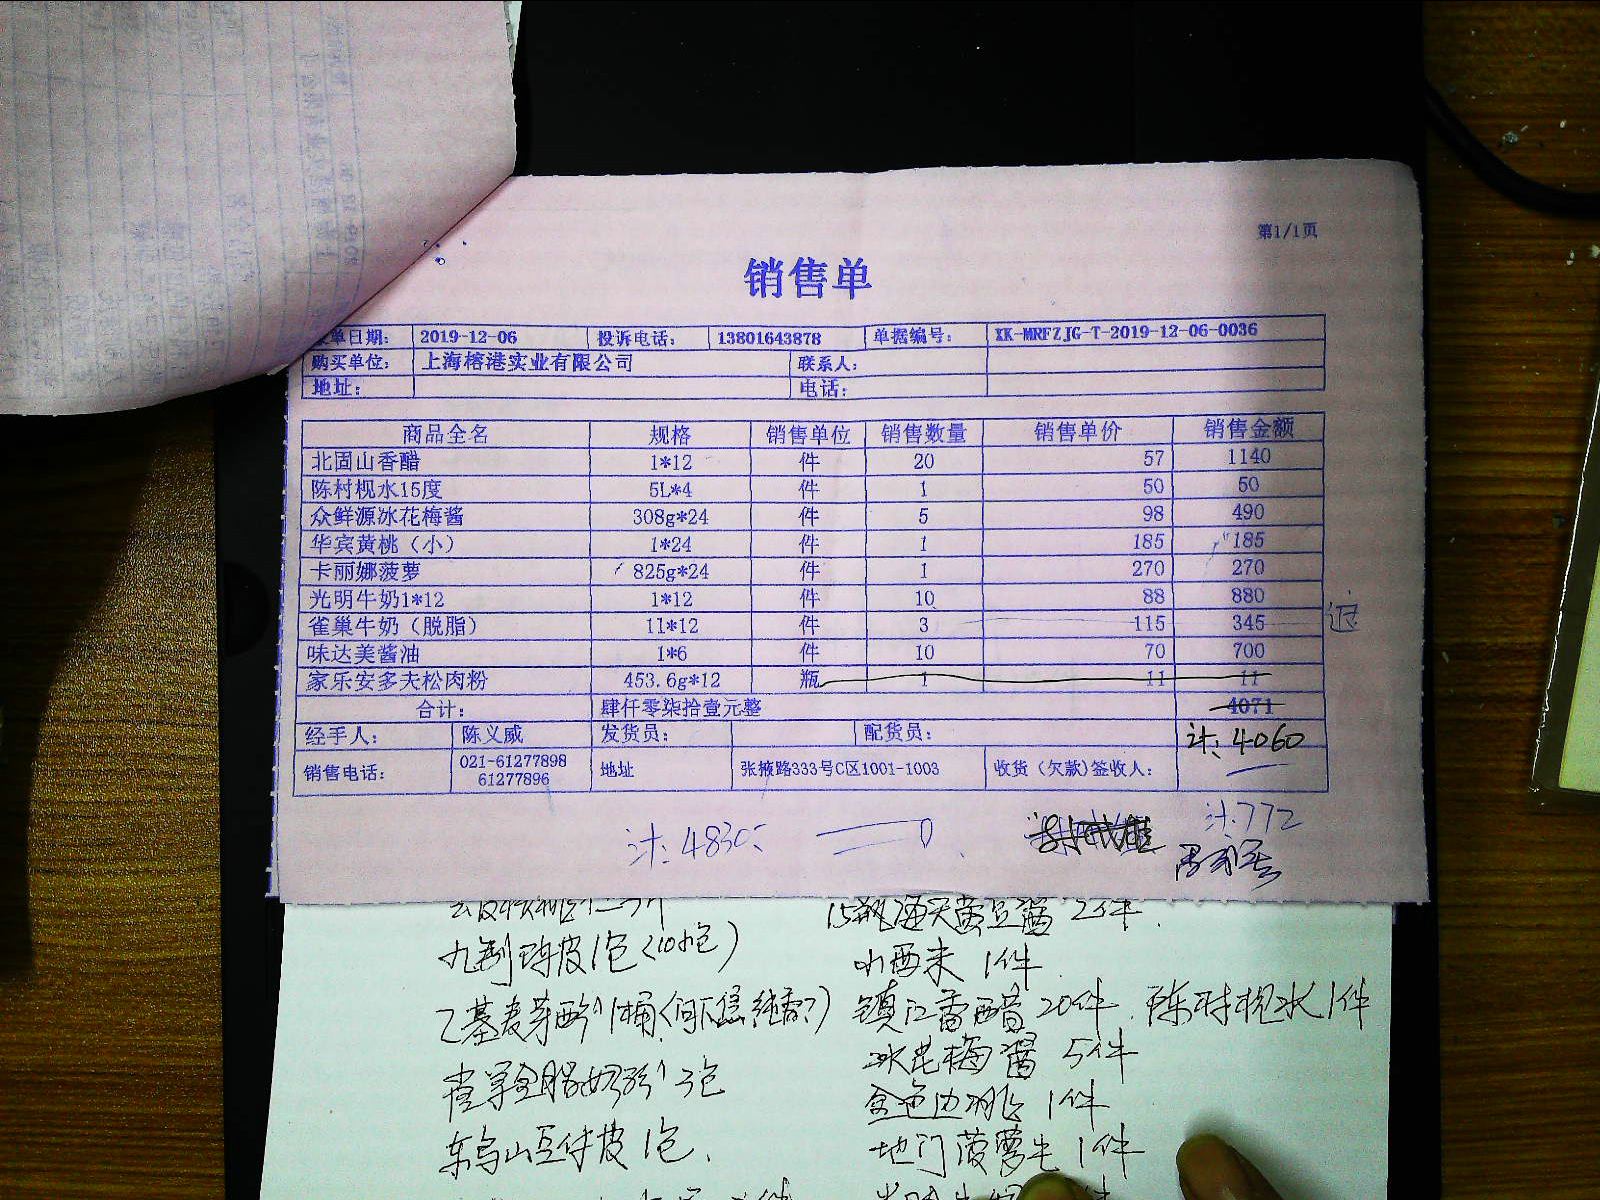 第1/1页
销售单
单日期： 2019-12-06 投诉电话： 13801643878 单据编号： XK-MRFZJG-T-2019-12-06-0036
购买单位： 上海榕港实业有限公司 联系人：
地址： 电话：
商品全名 规格 销售单位 销售数量 销售单价 销售金额
北固山香醋 1*12 件 20 57 1140
陈村枧水15度 5L*4 件 1 50 50
众鲜源冰花梅酱 308g*24 件 5 98 490
华宾黄桃（小） 1*24 件 1 185 185
卡丽娜菠萝 825g*24 件 1 270 270
光明牛奶1*12 1*12 件 10 88 880
雀巢牛奶（脱脂） 1l*12 件 3 115 345 退
味达美酱油 1*6 件 10 70 700
家乐安多夫松肉粉 453.6g*12 瓶 1 11 11
合计： 肆仟零柒拾壹元整 4071
经手人： 陈义威 发货员： 配货员： 计：4060
销售电话： 021-61277898 61277896 地址 张掖路333号C区1001-1003 收货（欠款)签收人：
计：772
九制陈皮1包（10小包） 西米 1件
镇江香醋 20件 陈村枧水1件
冰花梅酱 5件
3包
1件
1包 地门菠萝 1件